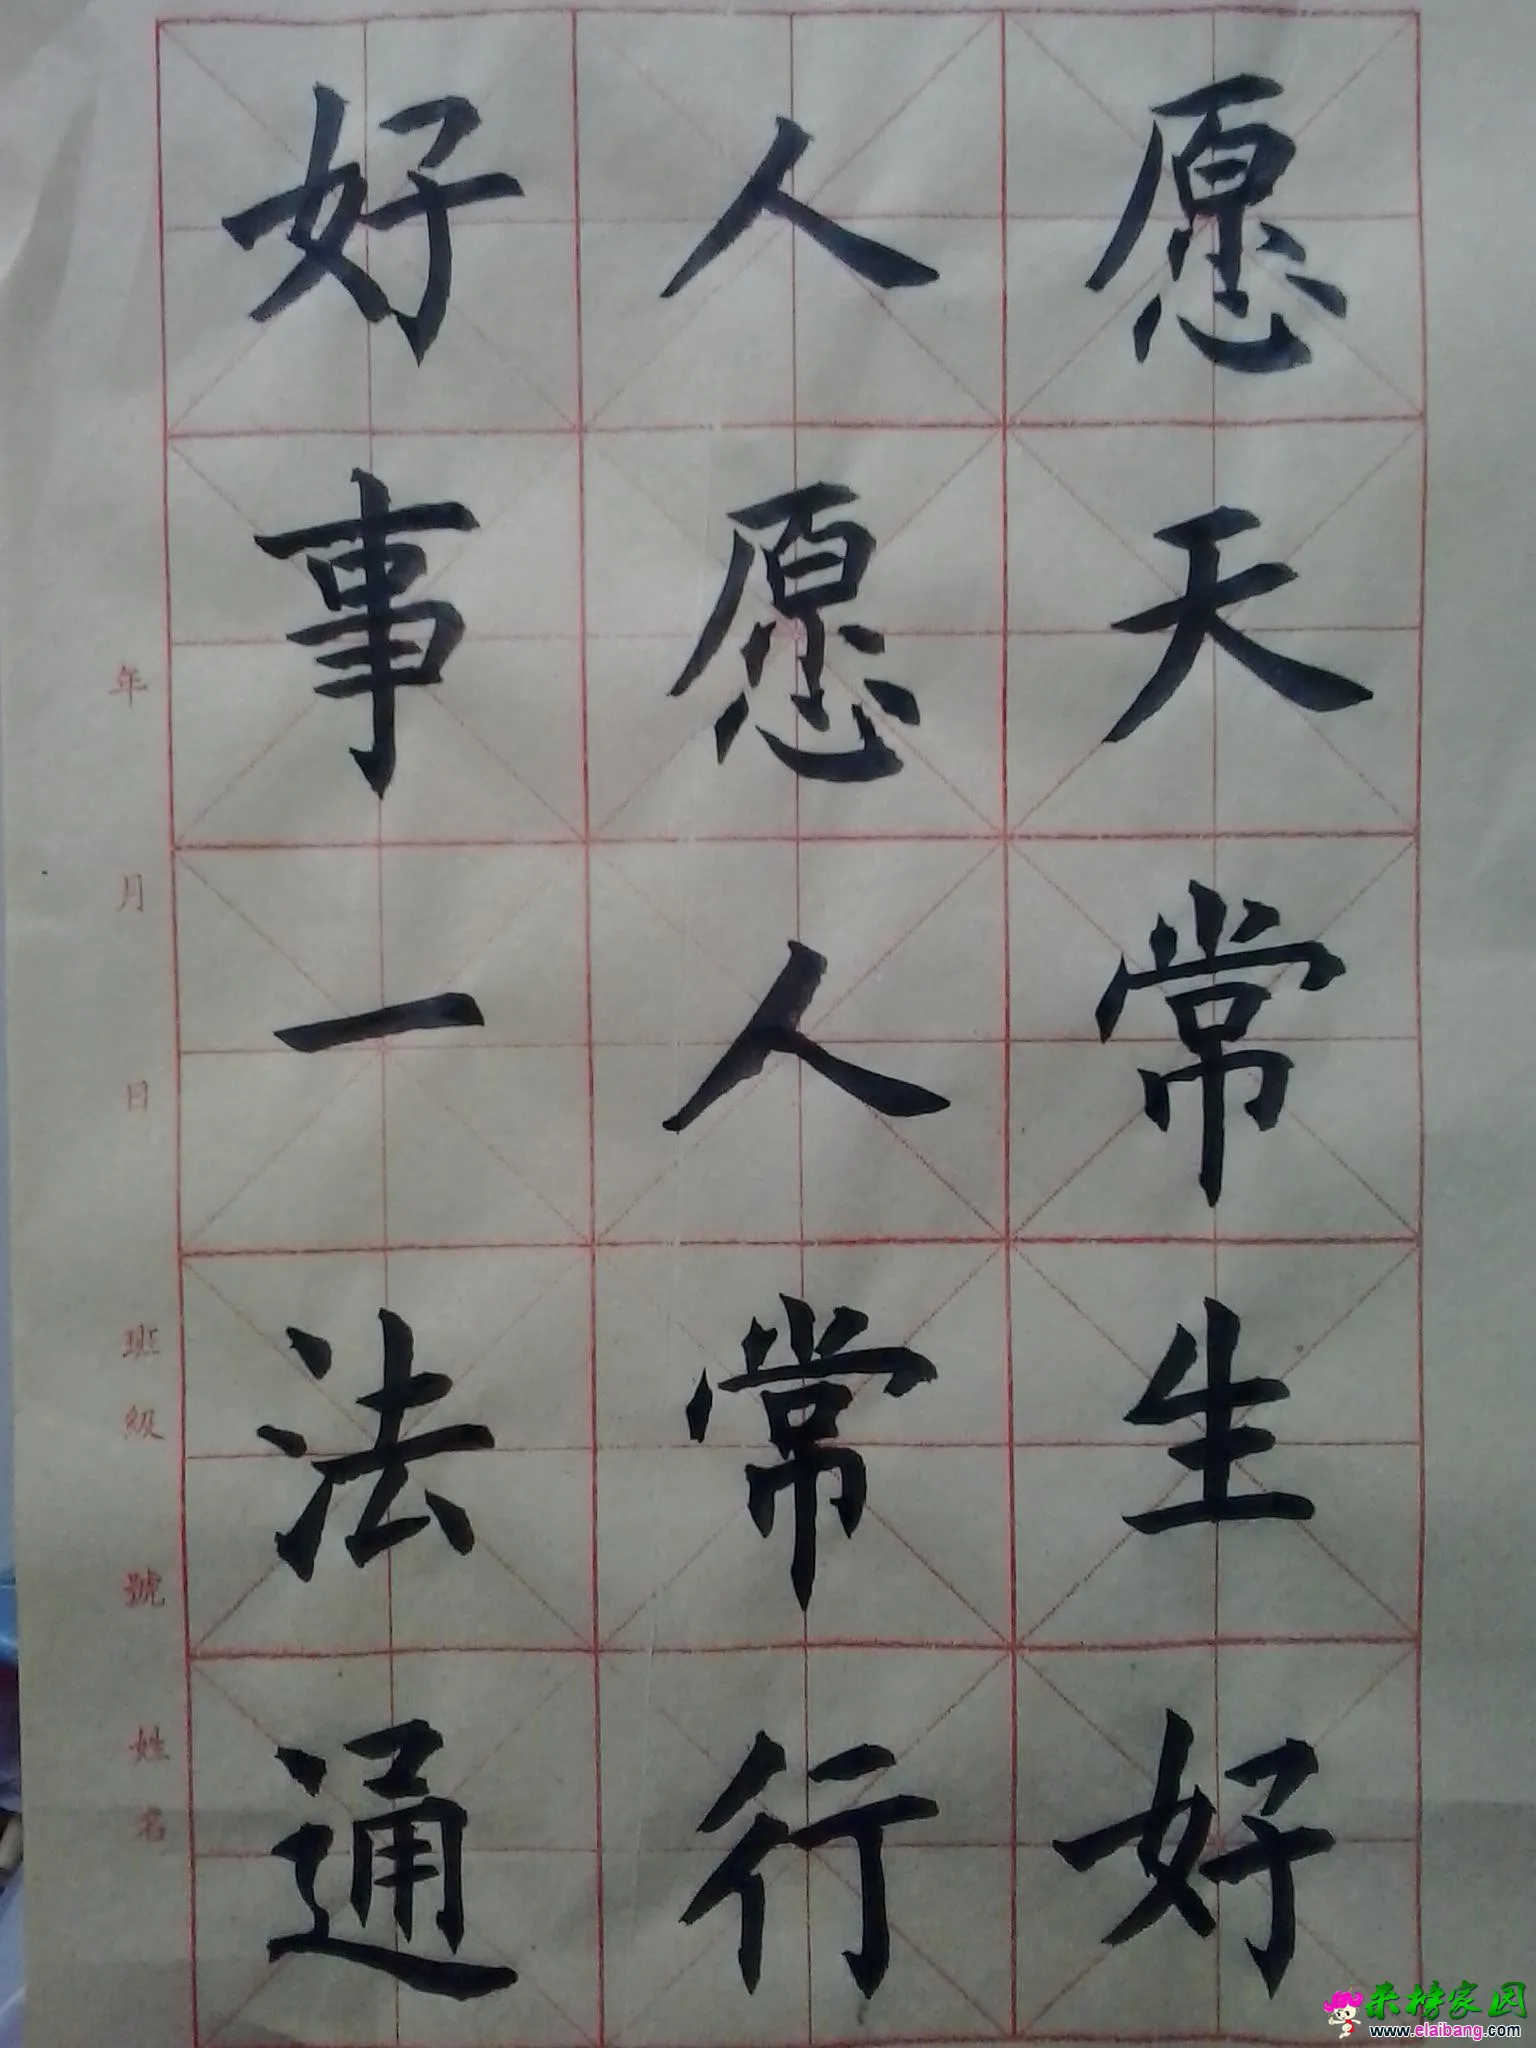 愿天常生好
人愿人常行
好事一法通
年 月 日 班级 號 姓名
来榜家园
www.elaibang.com